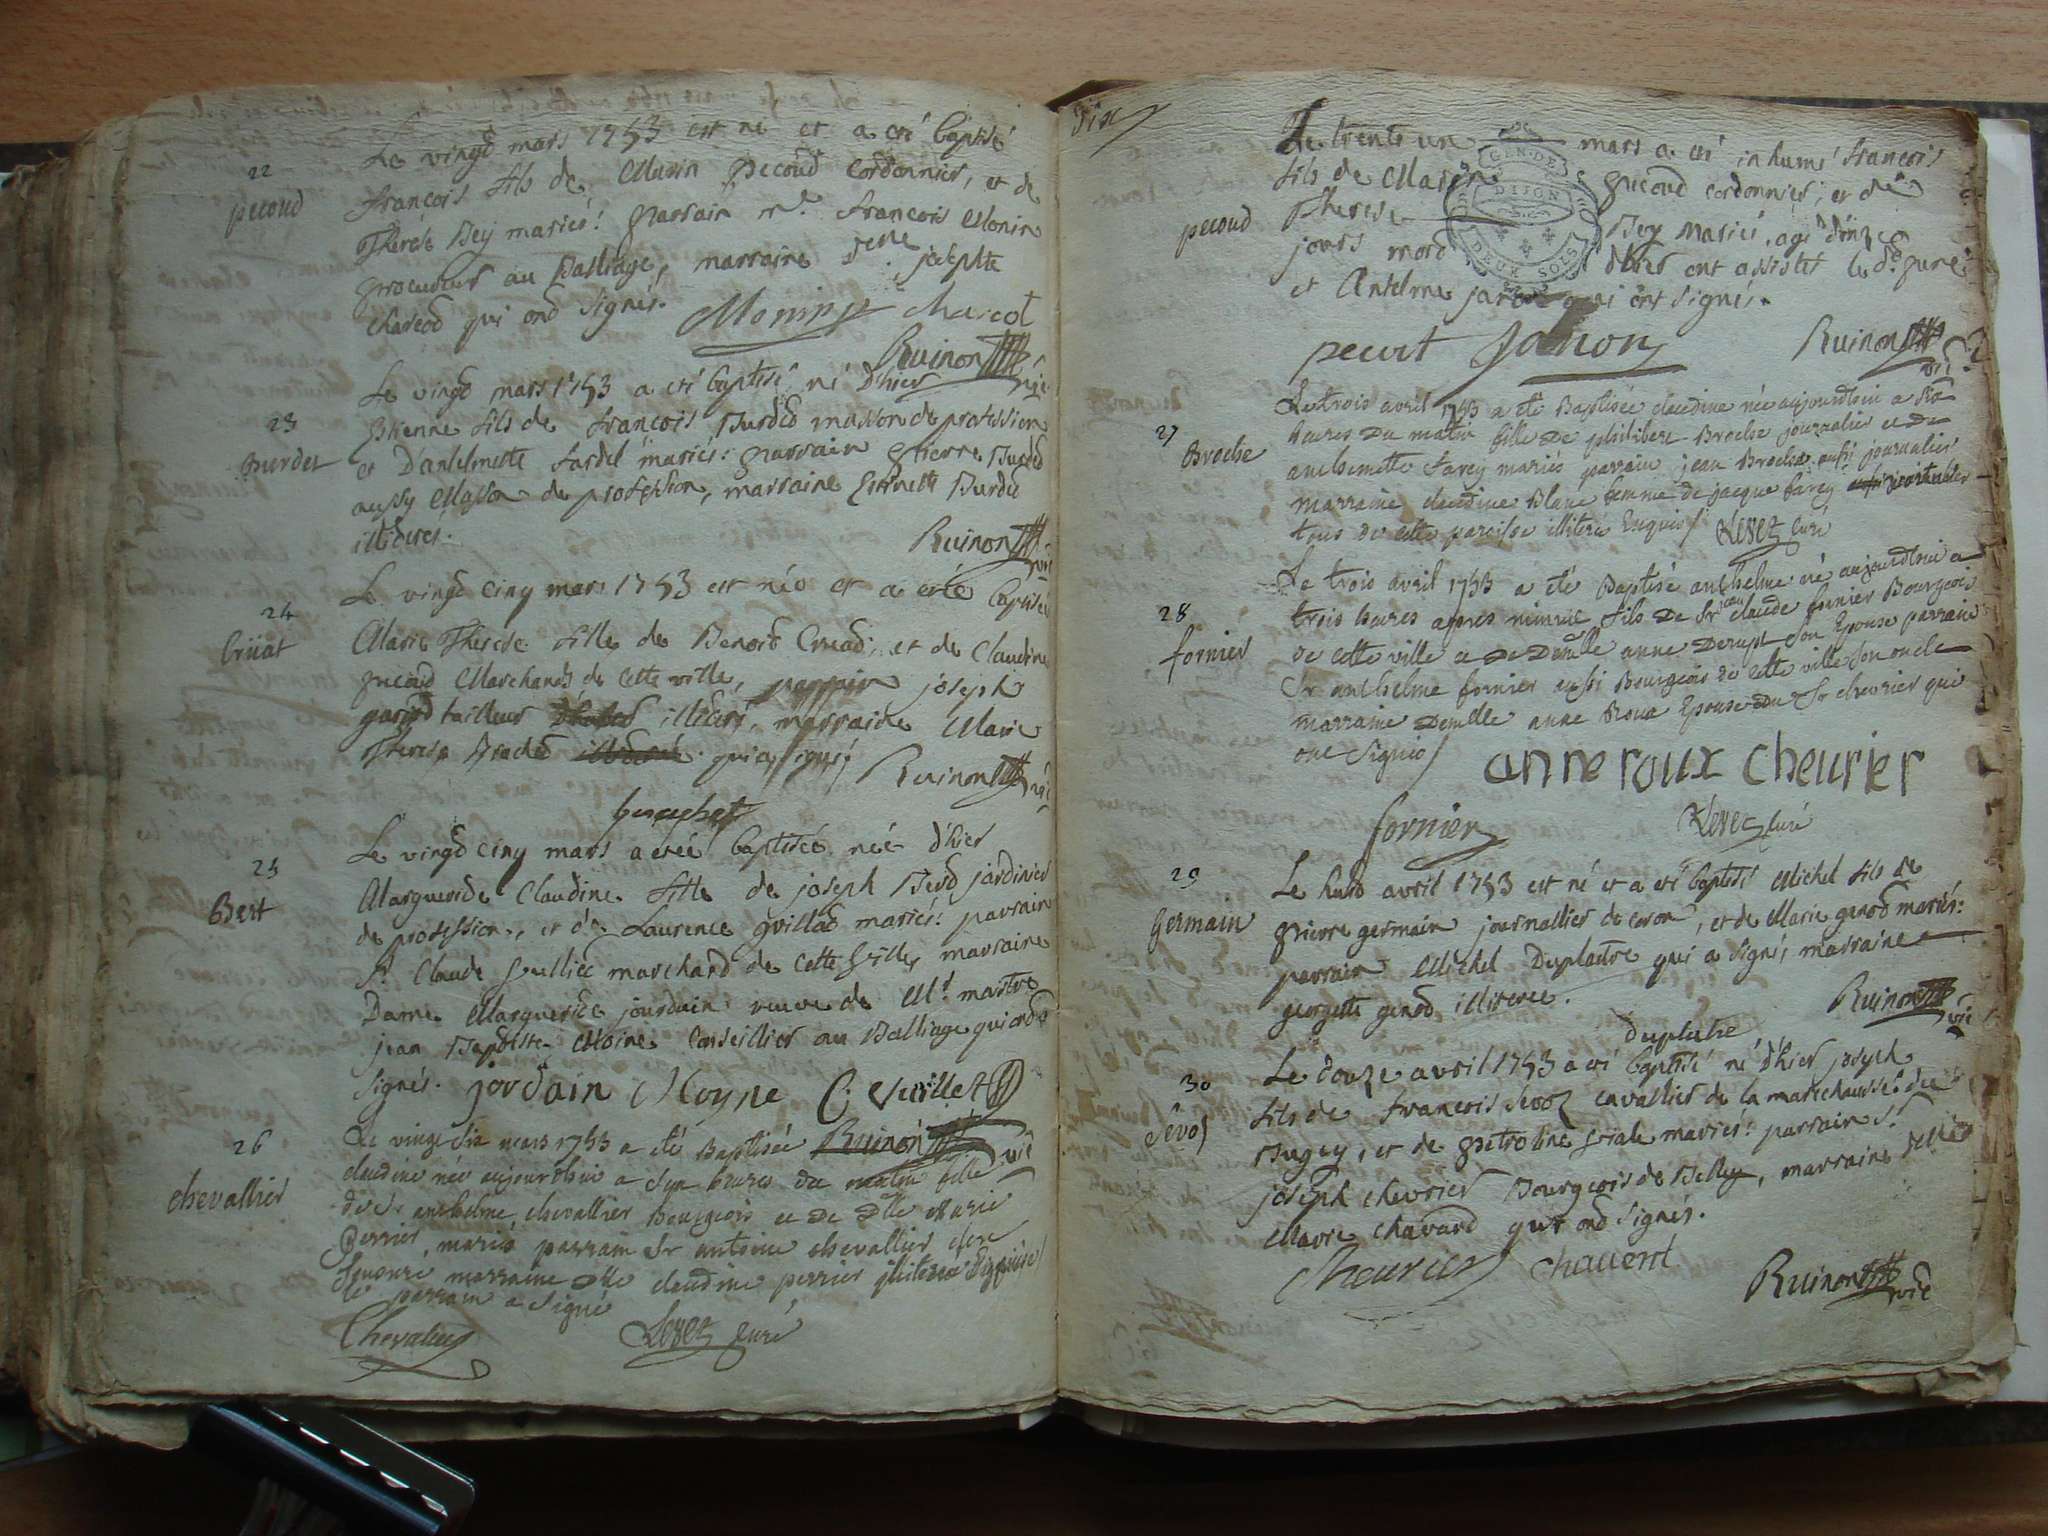 22
pecoud
Le vingt mars 1753 est né et a eté baptisé
françois fils de Marin pecoud cordonnier, et de
Therese Bey mariés: parrain mr. françois Monin
procureur au Balliage, marraine delle josephte
qui ont signés. Monin Marcot
Ruinon vic
23
Burdet
Le vingt mars 1753 a eté baptisé né d'hier
Etienne fils de françois Burdet masson de profession
et D'antelmette fardel mariés: parrain pierre Burdet
aussy Masson de profession, marraine Burdet
illiterés.
Ruinon vic
24
Crüat
Le vingt cinq mars 1753 est née et a etée baptisée
Marie Therese fille de Benoit Cruat, et de Claudine
pecoud Marchands de cette ville, parrain joseph
tailleur illiteré, marraine Marie
Therese Brochet qui a signé
Ruinon vic
brochet
25
Bert
Le vingt cinq mars a etée baptisée née d'hier
Marguerite Claudine fille de joseph Bert jardinier
de profession, et de Laurence guillot mariés: parrain
Sr. Claude marchand de cette ville, marraine
Dame Marguerite jourdain veuve de Mr. maitre
jean Baptiste Moine Conseillier au Balliage qui ont
signés. jordain Moyne C. Vuillet
Ruinon vic
26
chevallier
Le vingt six mars 1753 a eté Baptisée
claudine née aujourdhui a six heures du matin fille
de Sr anthelme chevallier Bourgeois et de Dlle Marie
perrier, mariés parrain Sr antoine chevallier
marraine Dlle claudine perrier illiterée
le parrain a signé
Chevalier Levet curé
Dix
pecoud
Le trente un mars a eté inhumé françois
fils de Marin pecoud cordonnier, et de
Therese Bey mariés, agé d'onze
jours mort d'hier ont assistés
et Antelme janon qui ont signés.
GEN. DE
DIJON
DEUX SOLS
pecout Janon Ruinon vic
27
Broche
Le trois avril 1753 a eté Baptisée claudine née aujourdhui a six
heures du matin fille de philibert Broche journalier et de
anthelmette farcy mariés parrain jean Broche aussi journalier
marraine claudine Blanc femme de jacque farcy
tous de cette paroisse illiterés Enquis Levet curé
28
fornier
Le trois avril 1753 a eté Baptisé anthelme né aujourdhui a
trois heures apres minuit fils de Sr claude fornier Bourgeois
de cette ville et de Demlle anne Derupt son Epouse parrain
Sr anthelme fornier aussi Bourgeois de cette ville son oncle
marraine Demlle anne Roux Epouse du Sr chevrier qui
ont signés
anne roux cheurier
fornier Levet curé
29
Germain
Le huit avril 1753 est né et a eté baptisé Michel fils de
pierre germain journallier de coron, et de Marie genod mariés:
parrain Michel Duplatre qui a signé, marraine
georgette genod illiterée.
Ruinon vic
duplatre
30
Sevoz
Le douze avril 1753 a eté baptisé né d'hier joseph
fils de françois Sevoz cavallier de la marechaussée du
Bugey, et de petroline mariés: parrain Sr
joseph chevrier Bourgeois de Belley, marraine delle
Marie chavand qui ont signés.
Cheurier chauent
Ruinon vic